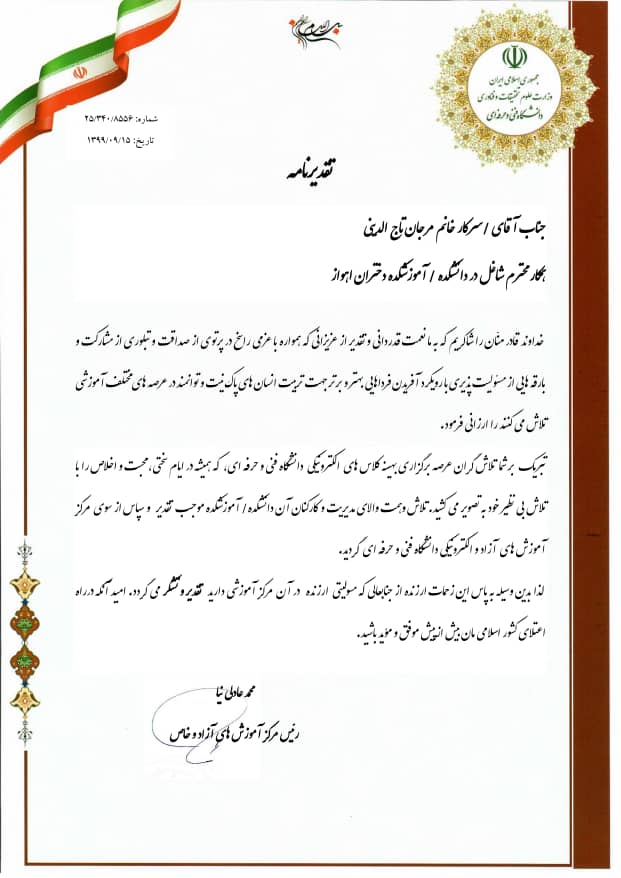 جمهوری اسلامی ایران
وزارت علوم تحقیقات و فناوری
دانشگاه فنی و حرفه ای
شماره: ۲۵/۳۴۰/۸۵۵۶
تاریخ: ۱۳۹۹/۰۹/۱۵
تقدیرنامه
جناب آقای /سرکار خانم مرجان تاج الدینی
همکار محترم شاغل در دانشکده / آموزشکده دختران اهواز
خداوند قادر منان را شاکریم که به ما نعمت قدردانی و تقدیر از عزیزانی که همواره با عزمی راسخ در پرتوی از صداقت و تبلوری از مشارکت و
بارقه هایی از مسئولیت پذیری با رویکرد آفریدن فرداهایی بهتر و برتر جهت تربیت انسان های پاک نیت و توانمند در عرصه های مختلف آموزشی
تلاش می کنند را ارزانی فرمود.
تبریک بر شما تلاش گران عرصه برگزاری بهینه کلاس های الکترونیکی دانشگاه فنی و حرفه ای، که همیشه در ایام سختی، محبت و اخلاص را با
تلاش بی نظیر خود به تصویر می کشید. تلاش و همت والای مدیریت و کارکنان آن دانشکده/ آموزشکده موجب تقدیر و سپاس از سوی مرکز
آموزش های آزاد و الکترونیکی دانشگاه فنی و حرفه ای گردید.
لذا بدین وسیله به پاس این زحمات ارزنده از جنابعالی که مسولیتی ارزنده در آن مرکز آموزشی دارید تقدیر و تشکر می گردد. امید آنکه در راه
اعتلای کشور اسلامی مان بیش از پیش موفق و مؤید باشید.
محمد عادلی نیا
رئیس مرکز آموزش های آزاد و خاص